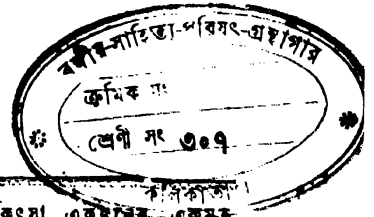 বঙ্গীয়-সাহিত্য-পরিষৎ-গ্রন্থাগার
ক্রমিক নং
শ্রেণী সং ৩০৭
কলিকাতা।